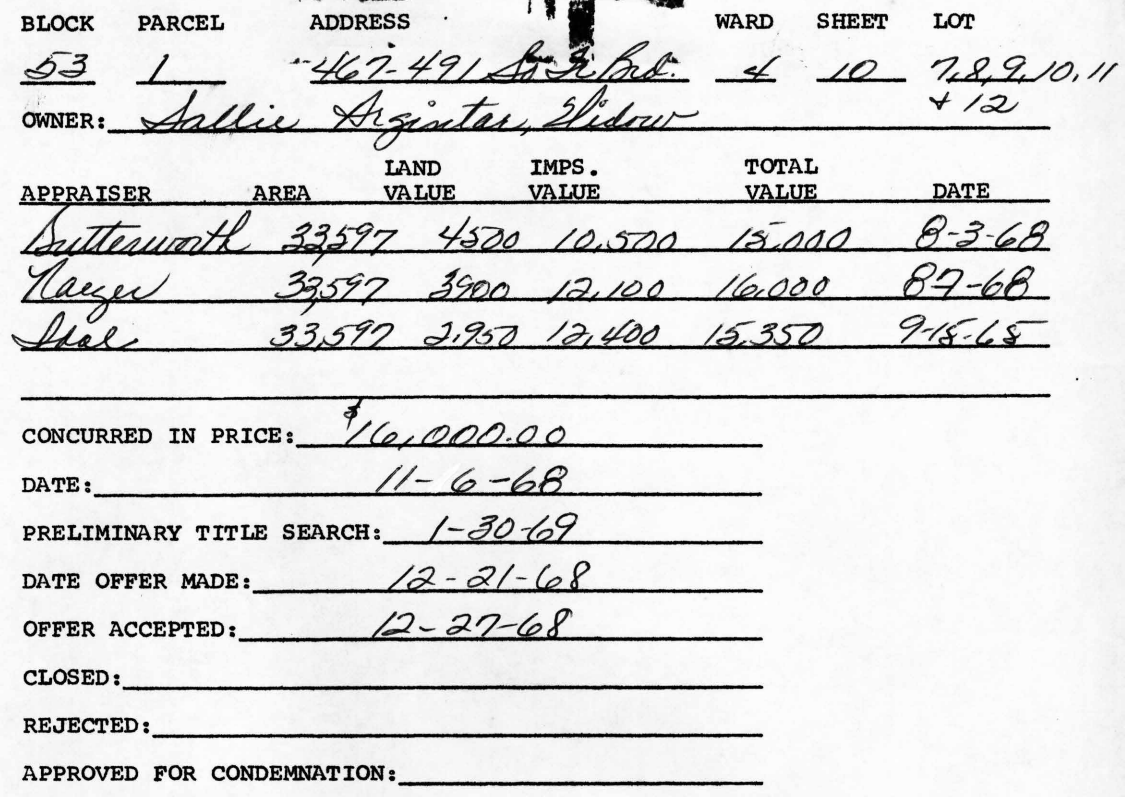 BLOCK PARCEL ADDRESS WARD SHEET LOT
53 1 467-491 So Fr Brd. 4 10 7,8,9,10,11
+ 12
OWNER: Sallie Arginitar, Widow
LAND IMPS. TOTAL
APPRAISER AREA VALUE VALUE VALUE DATE
Butterworth 33,597 4500 10,500 15,000 8-3-68
33,597 3900 12,100 16,000 87-68
33,597 2,950 12,400 15,350 9-18-68
CONCURRED IN PRICE: $16,000.00
DATE: 11-6-68
PRELIMINARY TITLE SEARCH: 1-30-69
DATE OFFER MADE: 12-21-68
OFFER ACCEPTED: 12-27-68
CLOSED:
REJECTED:
APPROVED FOR CONDEMNATION: